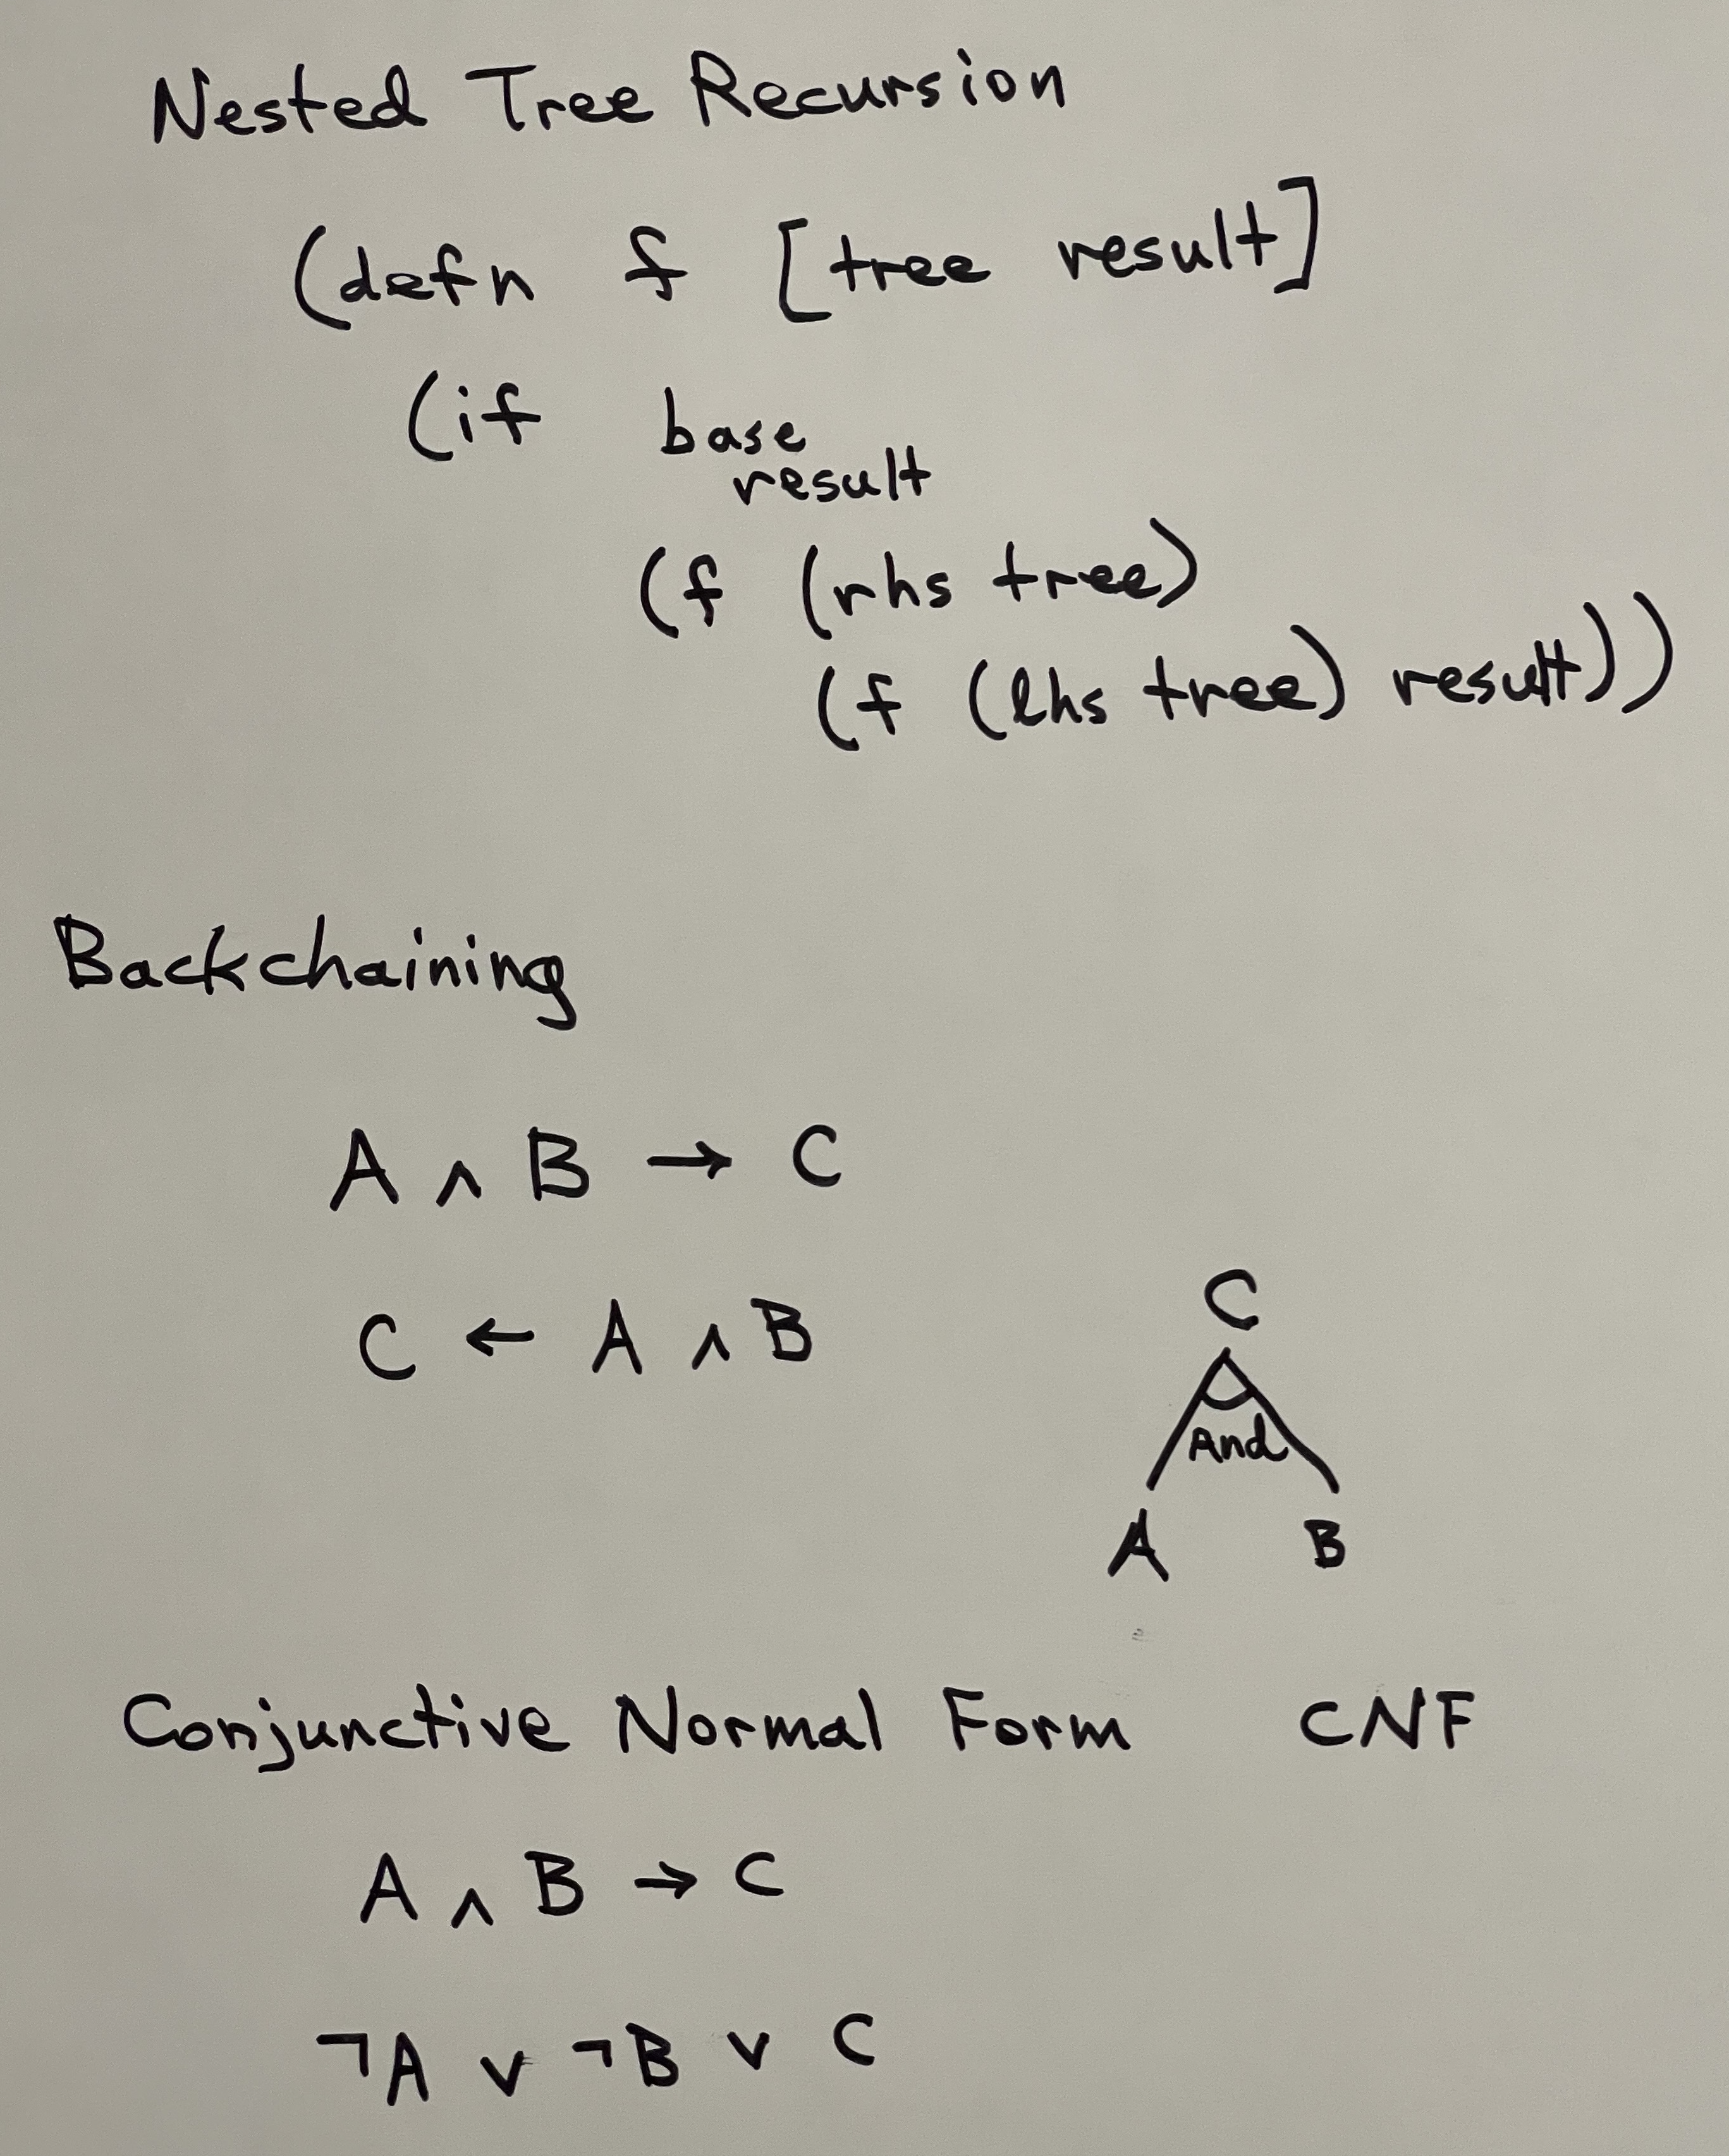 Nested Tree Recursion
(defn f [tree result]
(if base
result
(f (rhs tree)
(f (lhs tree) result))
Backchaining
A ∧ B → C
C ← A ∧ B
C
And
A B
Conjunctive Normal Form CNF
A ∧ B → C
¬A ∨ ¬B ∨ C